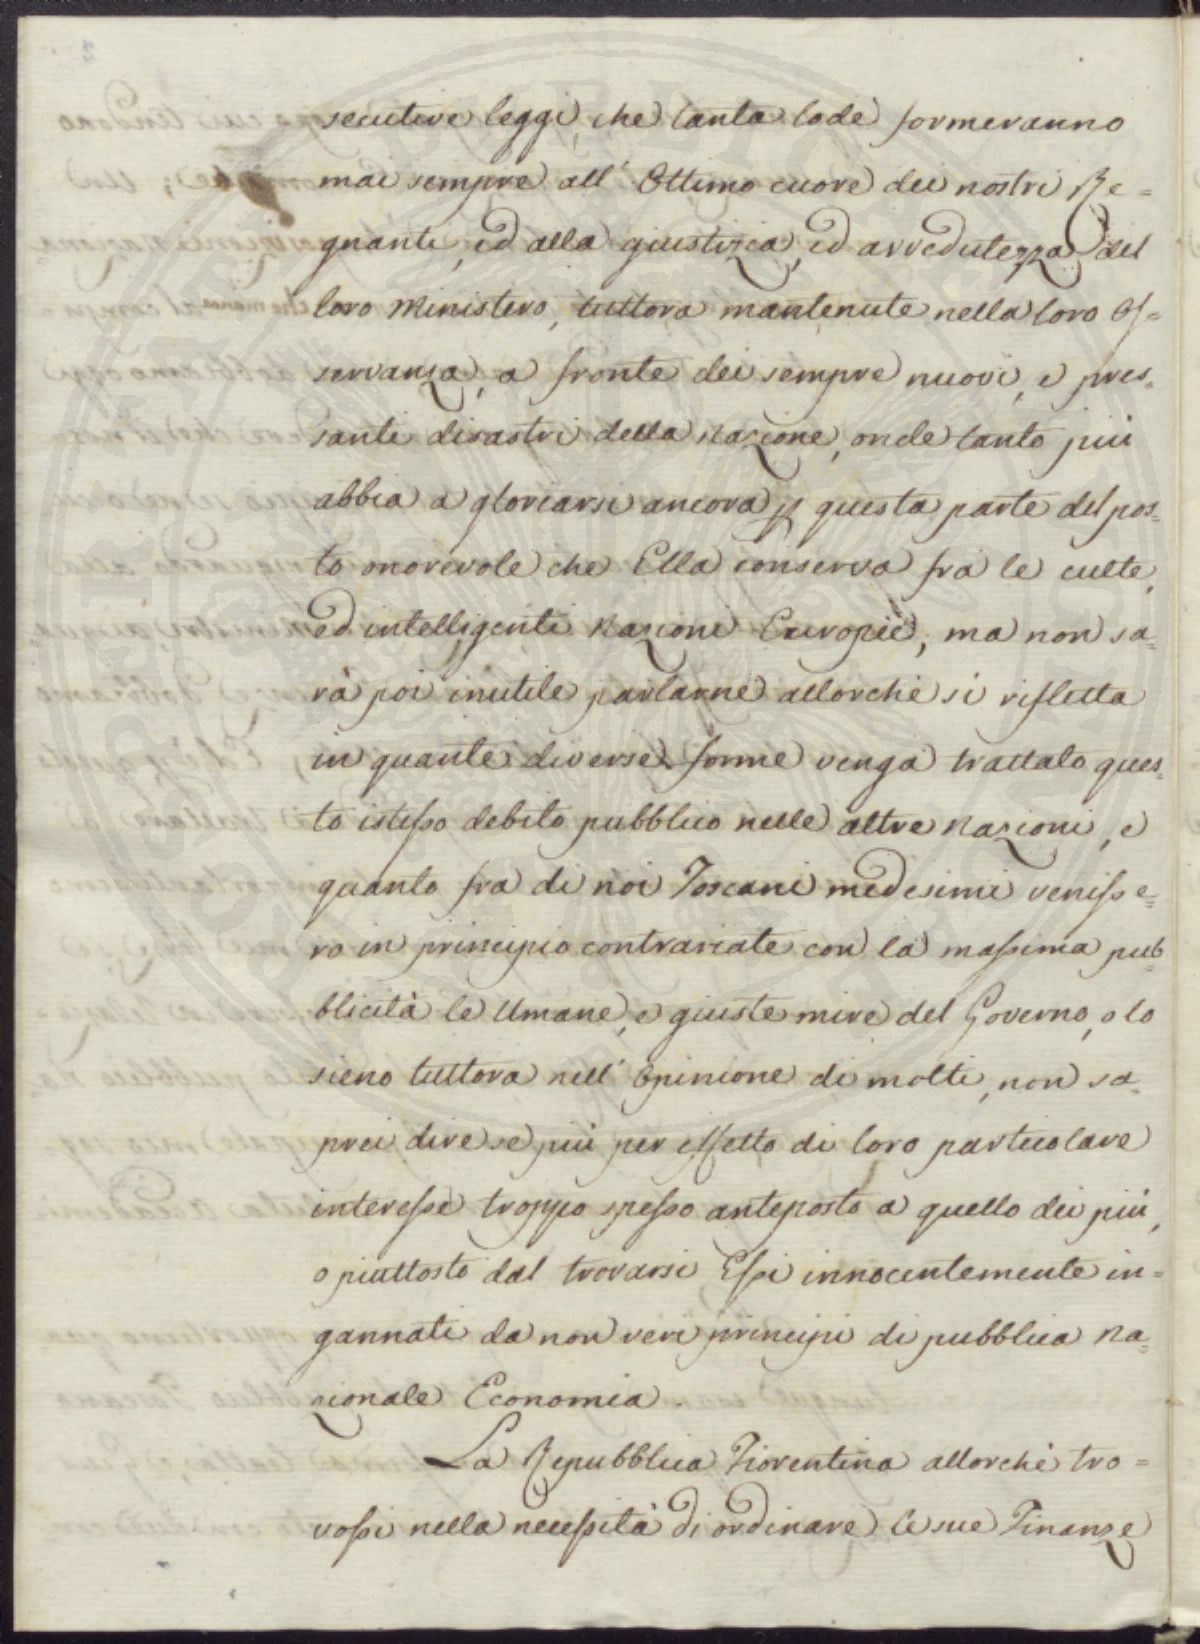 secutive leggi, che tanta lode formeranno
mai sempre all' Ottimo cuore dei nostri Re=
gnanti, ed alla giustizia, ed avvedutezza del
loro Ministero, tuttora mantenute nella loro Os=
servanza, a fronte dei sempre nuovi, e pres=
santi disastri della Nazione, onde tanto più
abbia a gloriarsi ancora p questa parte del pos=
to onorevole che Ella conserva fra le culte,
ed intelligenti Nazioni Europee, ma non sa=
rà poi inutile parlarne allorchè si rifletta
in quante diverse forme venga trattato ques=
to istesso debito pubblico nelle altre Nazioni, e
quanto fra di noi Toscani medesimi venisse=
ro in principio contrariate con la massima pub=
blicità le Umane, e giuste mire del Governo, o lo
sieno tuttora nell' Opinione di molti, non sa=
prei dire se più per effetto di loro particolare
interesse troppo spesso anteposto a quello dei più,
o piuttosto dal trovarsi Essi innocentemente in=
gannati da non veri principi di pubblica Na=
zionale Economia.
La Repubblica Fiorentina allorchè tro=
vossi nella necessità di ordinare le sue Finanze